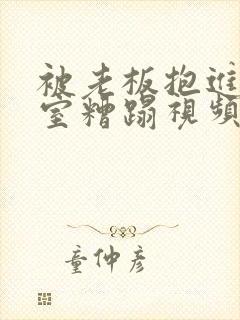 被老板抱进
室糟蹋视频
童仲彦